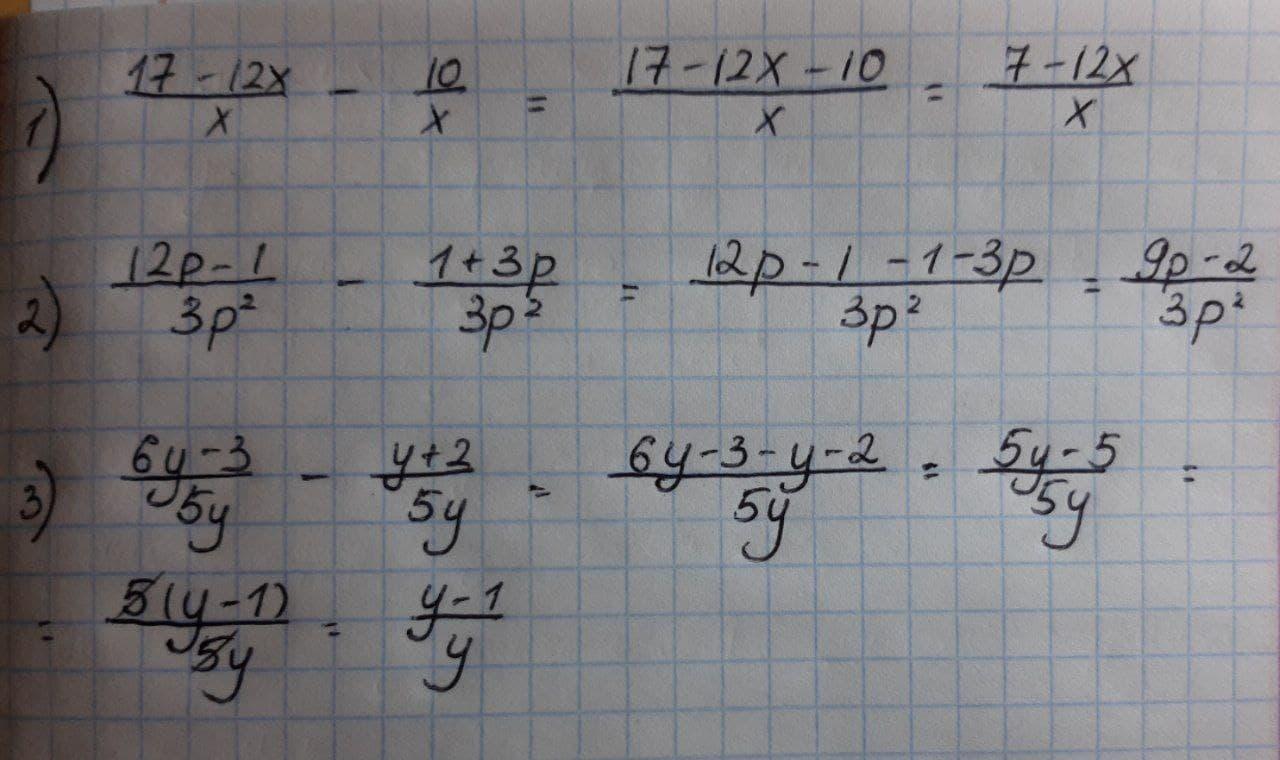 1) (17-12x)/x - 10/x = (17-12x-10)/x = (7-12x)/x
2) (12p-1)/(3p²) - (1+3p)/(3p²) = (12p-1-1-3p)/(3p²) = (9p-2)/(3p²)
3) (6y-3)/(5y) - (y+2)/(5y) = (6y-3-y-2)/(5y) = (5y-5)/(5y) =
= (5(y-1))/(5y) = (y-1)/y